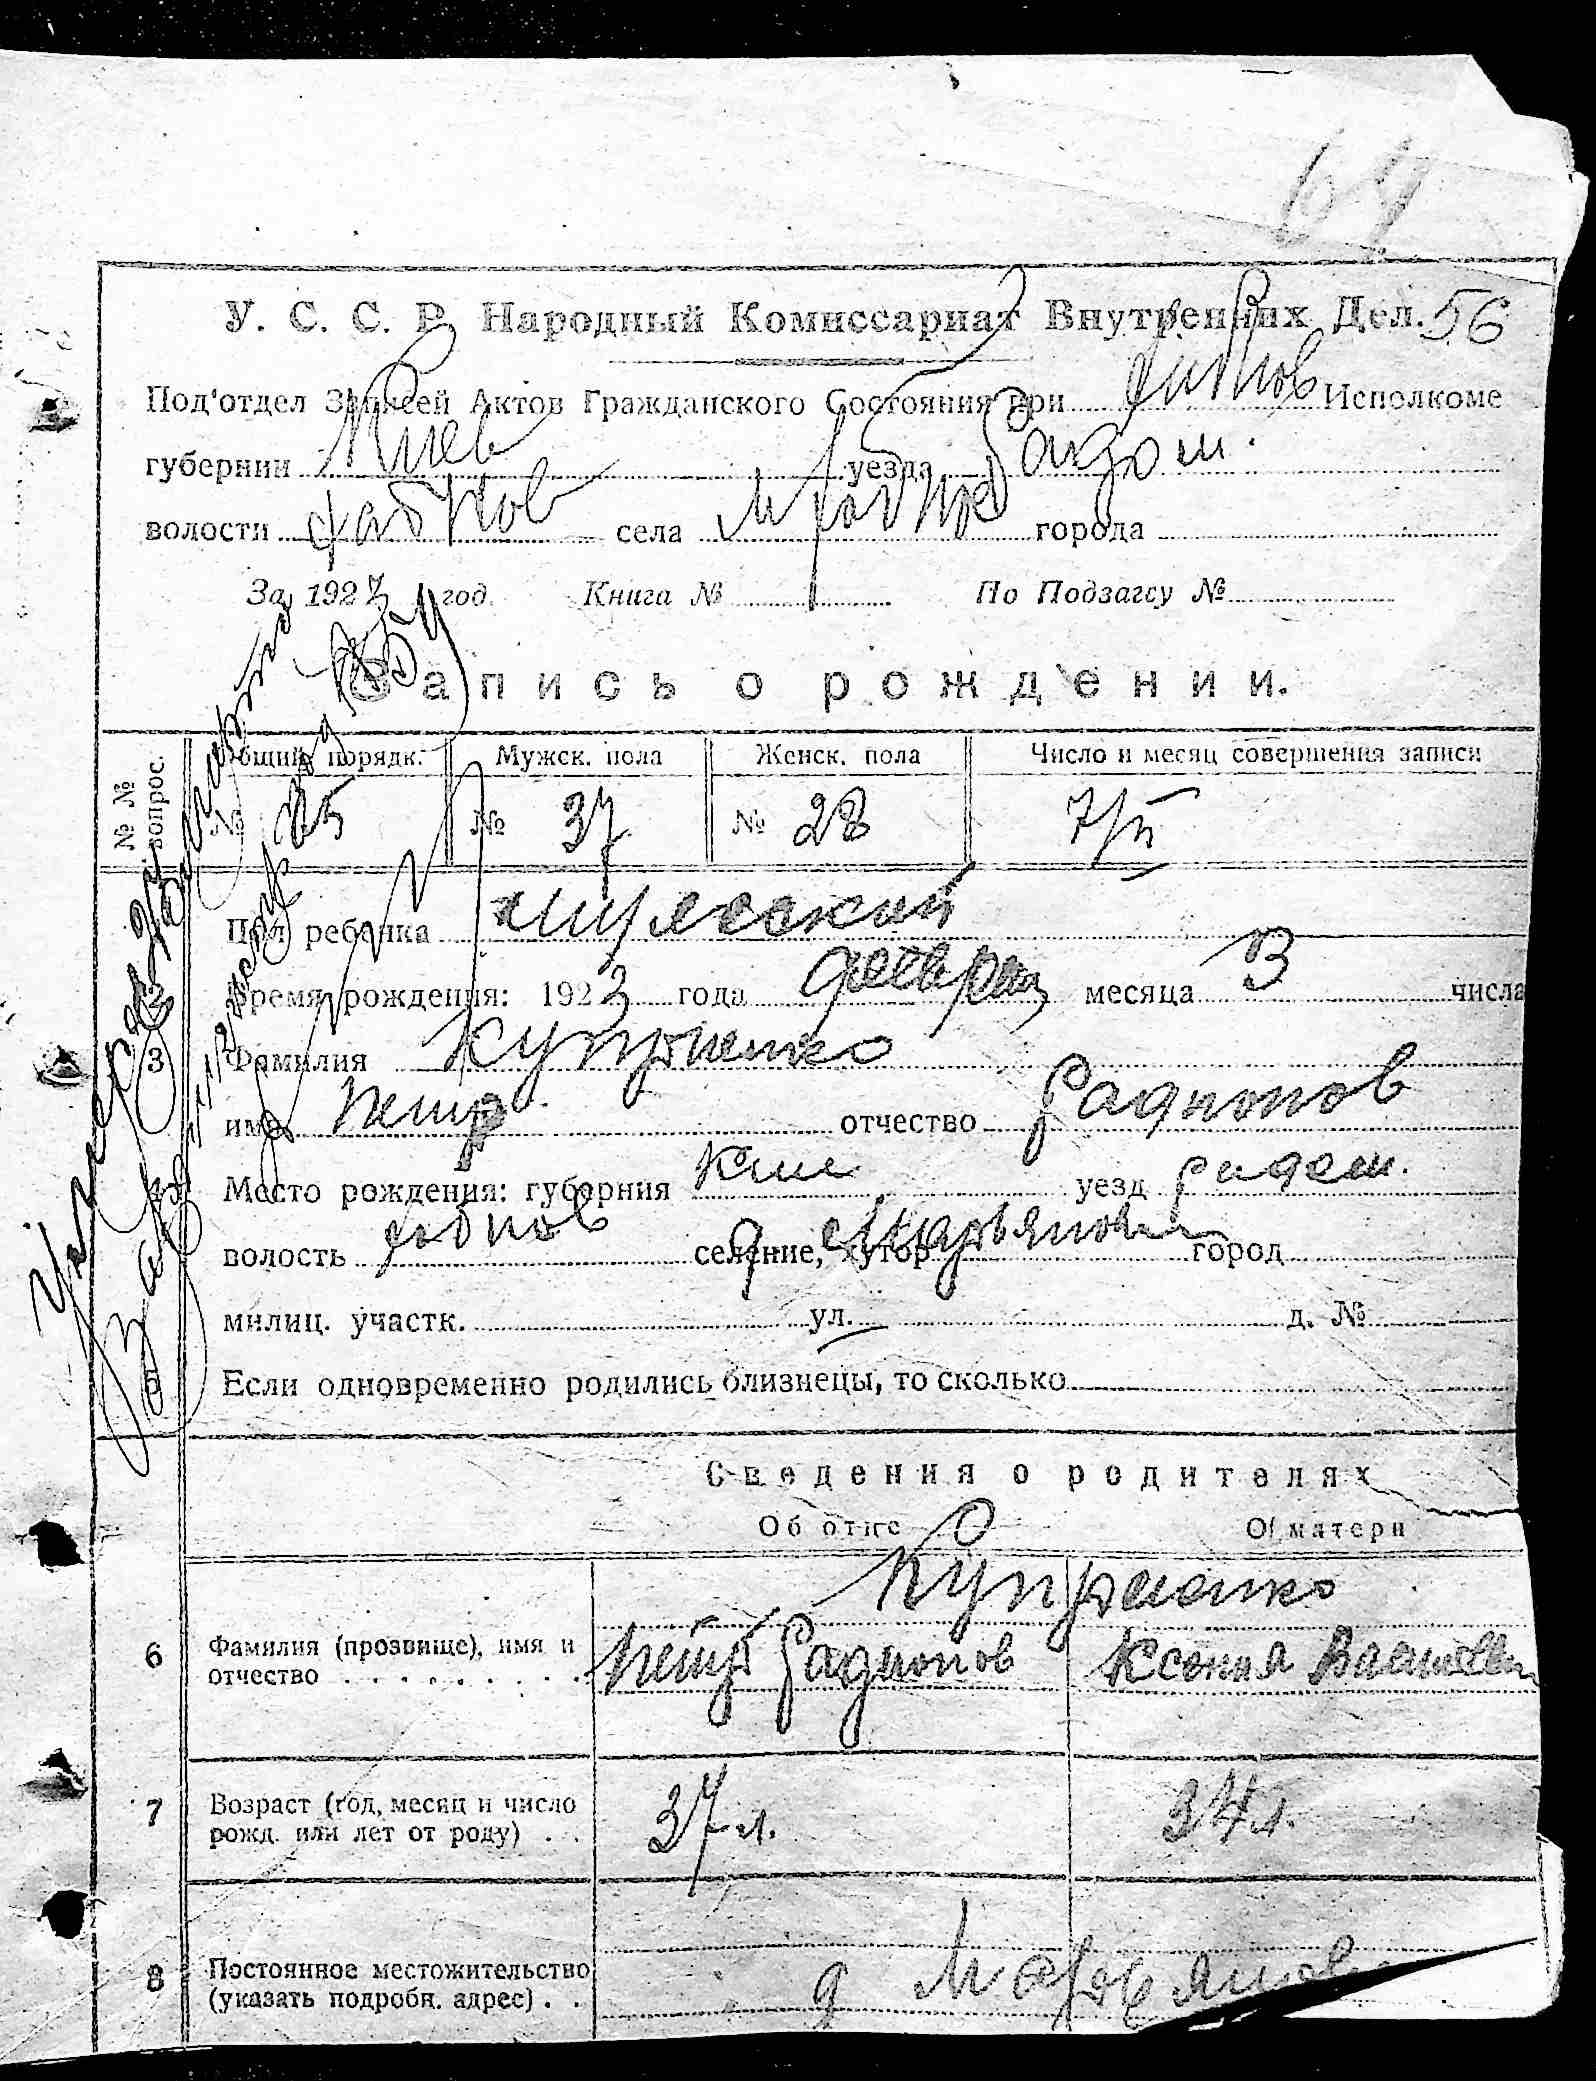 64
У. С. С. Р. Народный Комиссариат Внутренних Дел. 56
Под'отдел Записей Актов Гражданского Состояния при Исполкоме
губернии Киев уезда Радом.
волости Фабнов села города
За 1923 год. Книга № По Подзагсу №
Запись о рождении.
№№ вопрос. Общий порядк. Мужск. пола Женск. пола Число и месяц совершения записи
№ № 37 № 28 7/II
Пол ребенка мужеский
Время рождения: 1923 года февраля месяца 3 числа
3 Фамилия Куприенко
имя Петр отчество Радионов
Место рождения: губерния Кие уезд Радом.
волость селение, хутор д. Марьянов город
милиц. участк. ул. д. №
5 Если одновременно родились близнецы, то сколько
Сведения о родителях
Об отце Об матери
Куприенко
6 Фамилия (прозвище), имя и отчество Петр Радионов Ксения Васильев
7 Возраст (год, месяц и число рожд. или лет от роду) 37 л. 34 л.
8 Постоянное местожительство (указать подробн. адрес) д Марьянов